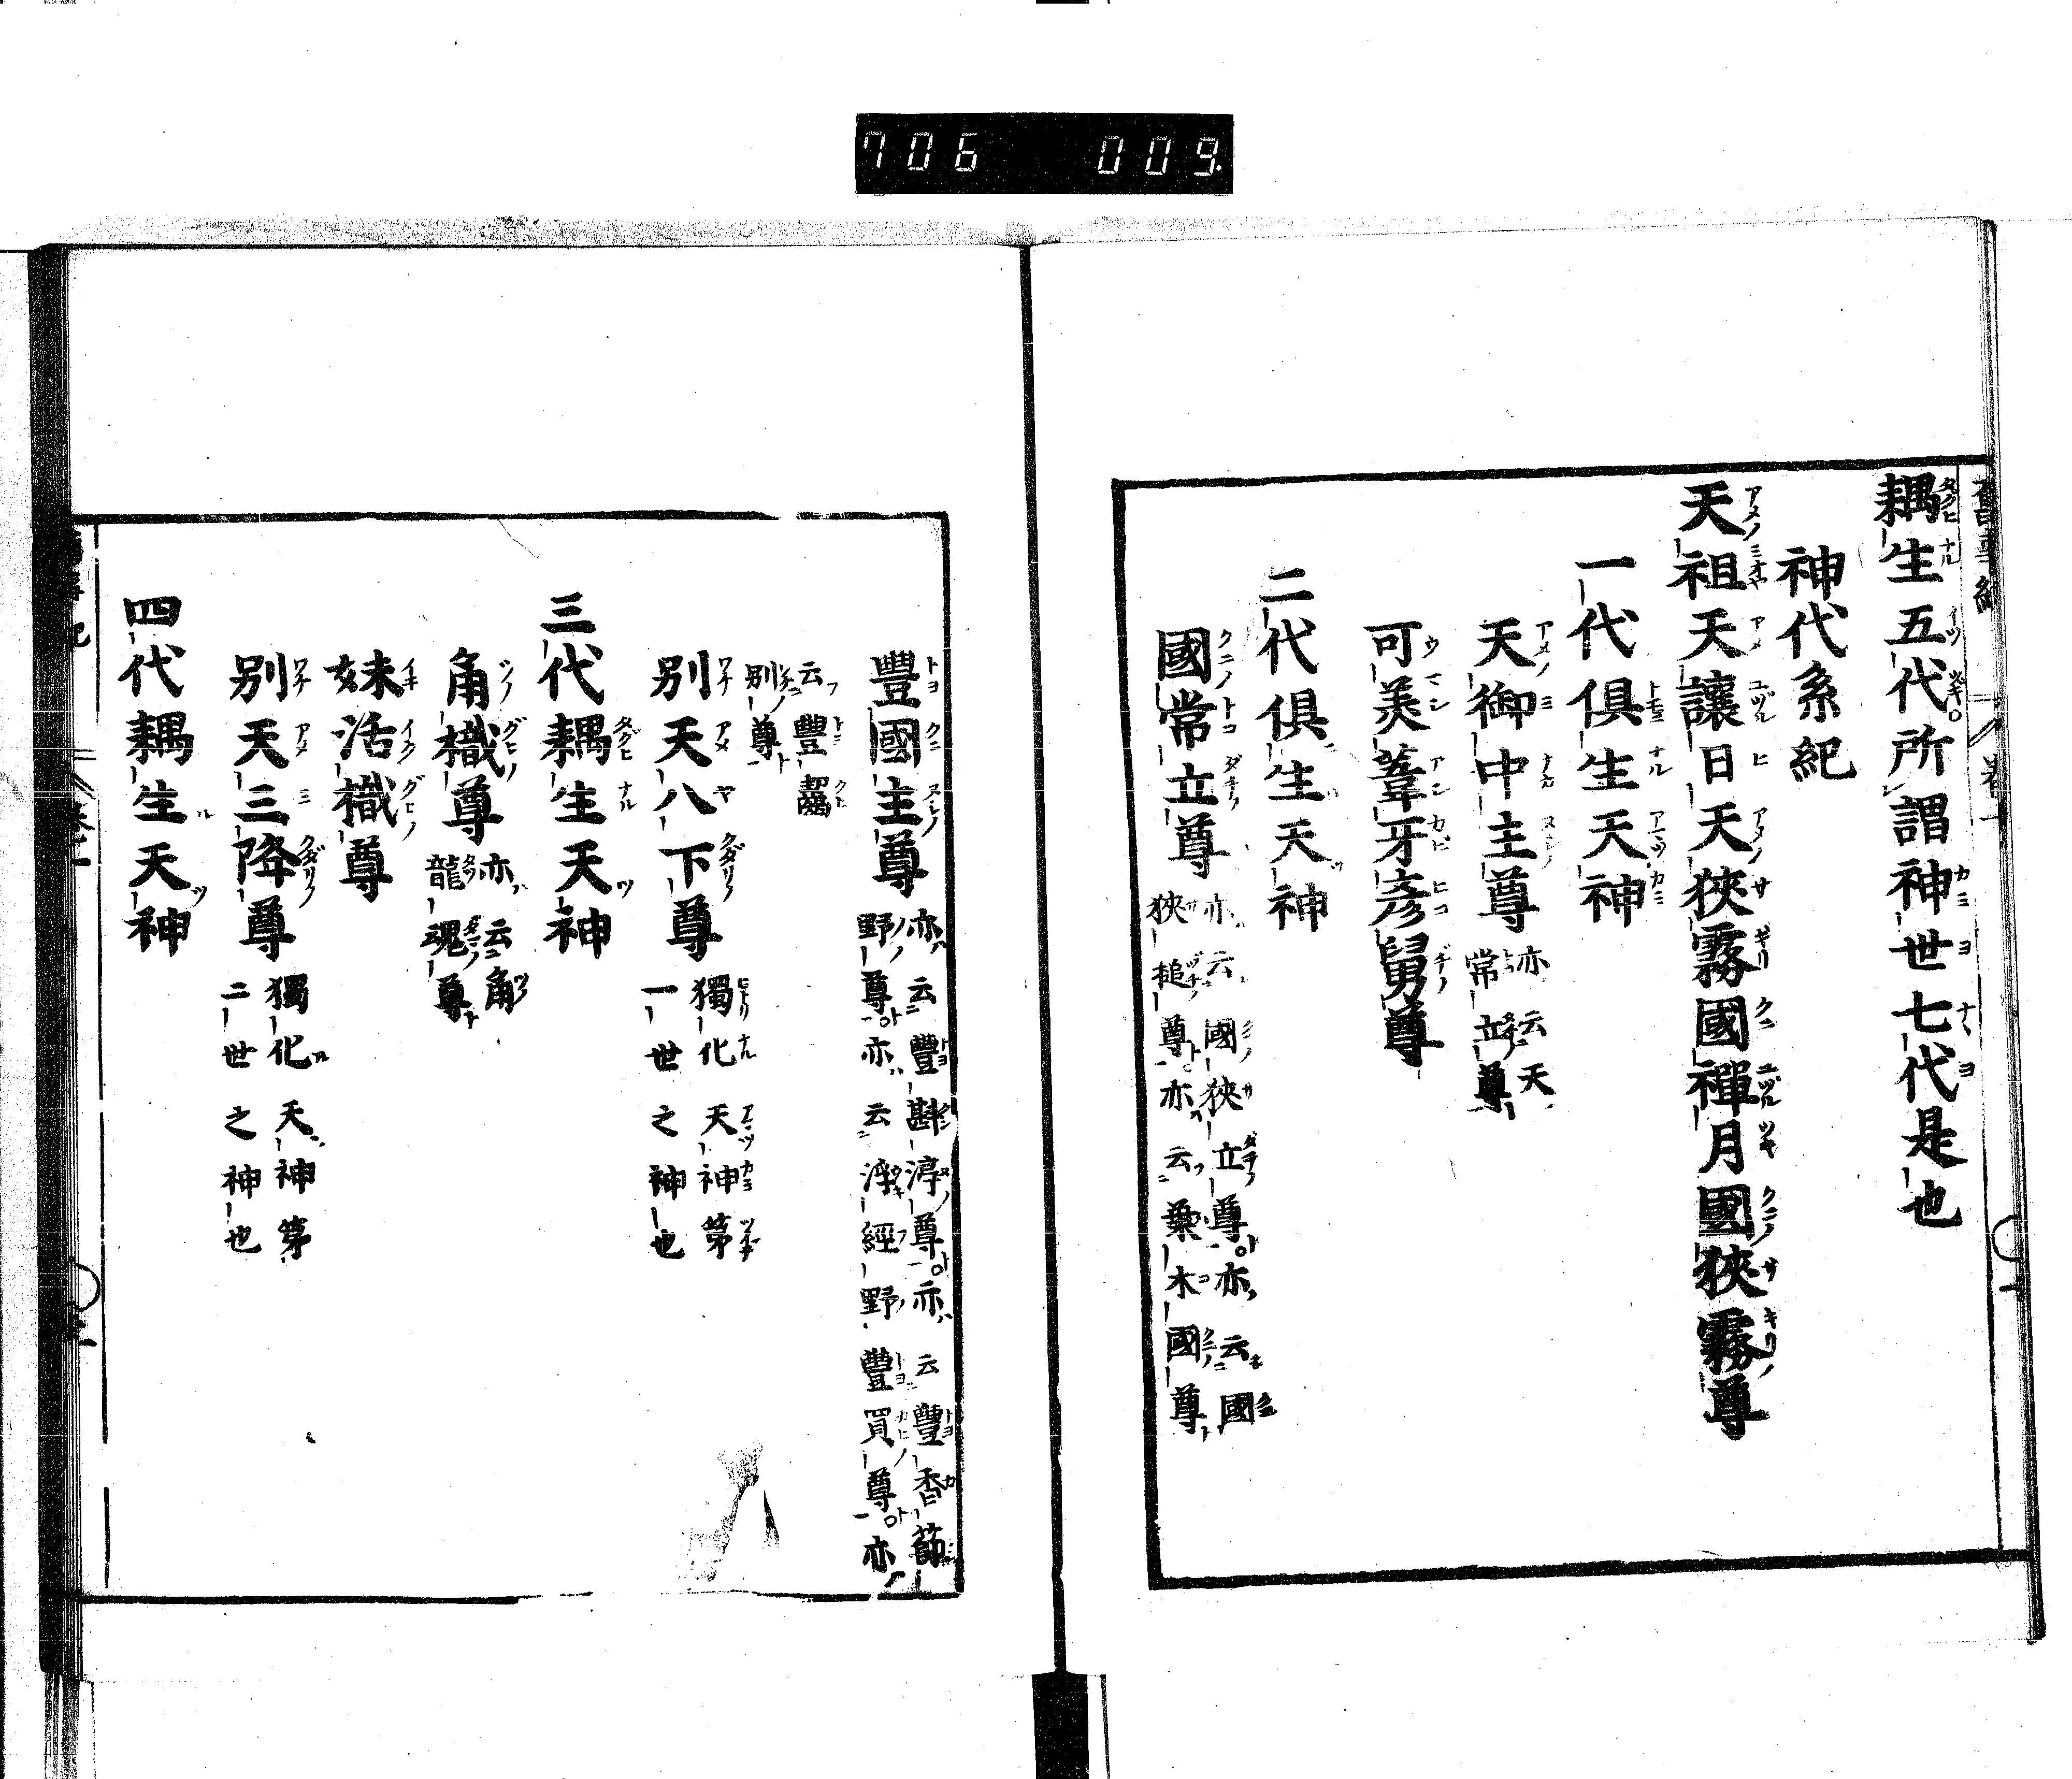 706 009
耦生五代所謂神世七代是也
神代系紀
天祖天讓日天狹霧國禪月國狹霧尊
一代俱生天神
天御中主尊亦云天常立尊
可美葦牙彥舅尊
二代俱生天神
國常立尊亦云國狹立尊亦云國狹槌尊亦云葉木國尊
豐國主尊亦云豐斟渟尊亦云豐香節野尊亦云浮經野豐買尊亦
云豐齧別尊
別天八下尊獨化天神第一世之神也
三代耦生天神
角樴尊亦云角龍魂尊
妹活樴尊
別天三降尊獨化天神第二世之神也
四代耦生天神